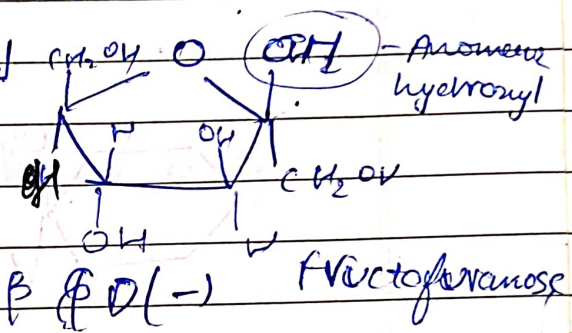 CH₂OH O OH - Anomeric
hydroxyl
H OH
H CH₂OH
OH H
β D(-) fructofuranose